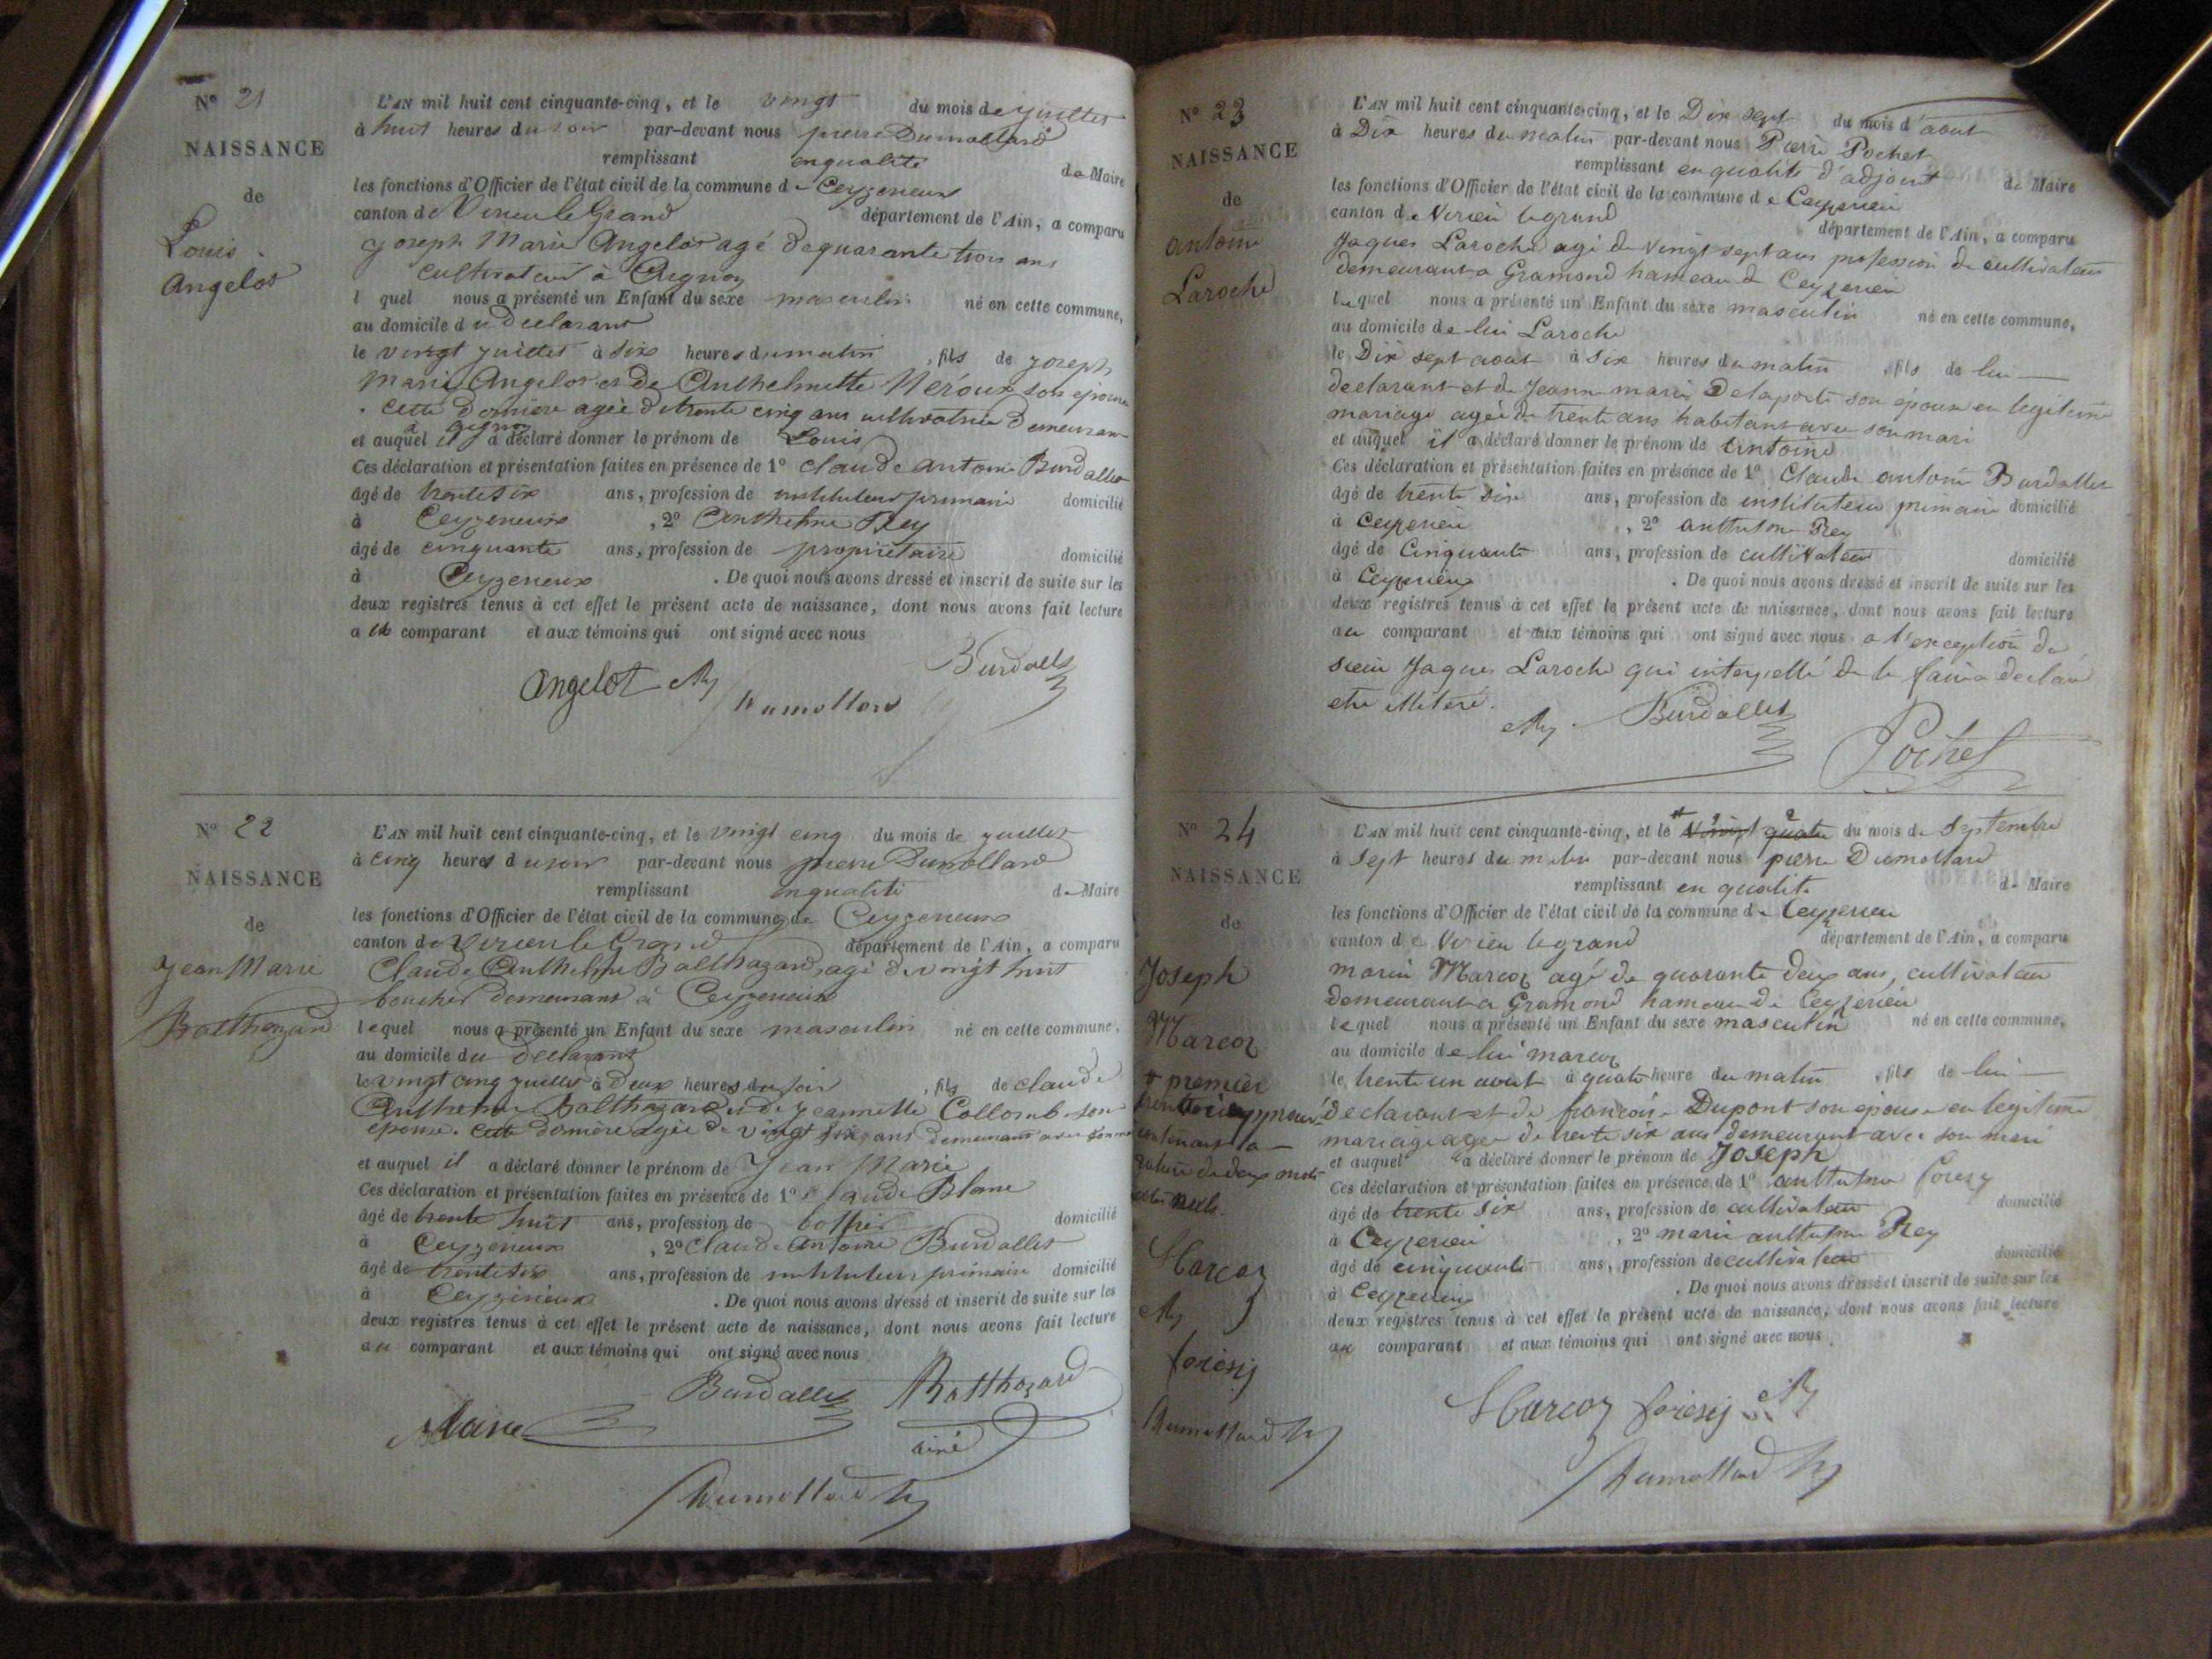 N° 21
NAISSANCE
de
Louis
Angelot
L'AN mil huit cent cinquante-cinq, et le vingt du mois de juillet
à huit heures du soir par-devant nous pierre Dumollard
remplissant en qualité de Maire
les fonctions d'Officier de l'état civil de la commune de Ceyzerieux
canton de Virieu le Grand département de l'Ain, a comparu
joseph Marie Angelot agé de quarante trois ans
cultivateur à Avignon
l quel nous a présenté un Enfant du sexe masculin né en cette commune,
au domicile du declarant
le vingt juillet à six heures du matin, fils de joseph
Marie Angelot et de Anthelmette Héroux son epouse
. cette derniere agée de trente cinq ans cultivatrice demeurant
à
et auquel il a déclaré donner le prénom de Louis
Ces déclaration et présentation faites en présence de 1° Claude antoine Burdallet
âgé de trente six ans, profession de instituteur primaire domicilié
à Ceyzerieux, 2° Anthelme Rey
âgé de cinquante ans, profession de propriétaire domicilié
à Ceyzerieux. De quoi nous avons dressé et inscrit de suite sur les
deux registres tenus à cet effet le présent acte de naissance, dont nous avons fait lecture
a comparant et aux témoins qui ont signé avec nous
Burdallet
Angelot Rey
Dumollard
N° 22
NAISSANCE
de
Jean Marie
Balthazard
L'AN mil huit cent cinquante-cinq, et le vingt cinq du mois de juillet
à cinq heures du soir par-devant nous pierre Dumollard
remplissant en qualité de Maire
les fonctions d'Officier de l'état civil de la commune de Ceyzerieux
canton de Virieu le Grand département de l'Ain, a comparu
Claude Anthelme Balthazard agé de vingt huit
boucher demeurant à Ceyzerieux
lequel nous a présenté un Enfant du sexe masculin né en cette commune,
au domicile du declarant
le vingt cinq juillet à deux heures du soir, fils de claude
Anthelme Balthazard et de jeannette Collomb son
épouse. Cette dernière agée de vingt six ans demeurant avec son
et auquel il a déclaré donner le prénom de Jean Marie
Ces déclaration et présentation faites en présence de 1° Claude Blanc
âgé de trente huit ans, profession de domicilié
à Ceyzerieux, 2° Claude Antoine Burdallet
âgé de trente six ans, profession de instituteur primaire domicilié
à Ceyzerieux. De quoi nous avons dressé et inscrit de suite sur les
deux registres tenus à cet effet le présent acte de naissance, dont nous avons fait lecture
au comparant et aux témoins qui ont signé avec nous
Burdallet Balthazard
Blanc ainé
Dumollard
N° 23
NAISSANCE
de
antoine
Laroche
L'AN mil huit cent cinquante-cinq, et le Dix sept du mois d'aout
à Dix heures du matin par-devant nous Pierre Pochet
remplissant en qualité d'adjoint de Maire
les fonctions d'Officier de l'état civil de la commune de Ceyzerieu
canton de Virieu legrand département de l'Ain, a comparu
Jaques Laroche agé de vingt sept ans profession de cultivateur
demeurant a Gramond hameau de Ceyzerieu
lequel nous a présenté un Enfant du sexe masculin né en cette commune,
au domicile de lui Laroche
le Dix sept aout à Six heures du matin, fils de lui
declarant et de Jeanne marie Delaporte son épouse en legitime
mariage agée de trente ans habitant avec son mari
et auquel il a déclaré donner le prénom de Antoine
Ces déclaration et présentation faites en présence de 1° Claude antoine Burdallet
âgé de trente six ans, profession de instituteur primaire domicilié
à Ceyzerieu, 2° anthelme Rey
âgé de Cinquante ans, profession de cultivateur domicilié
à Ceyzerieu. De quoi nous avons dressé et inscrit de suite sur les
deux registres tenus à cet effet le présent acte de naissance, dont nous avons fait lecture
au comparant et aux témoins qui ont signé avec nous a l'exception du
sieur Jaques Laroche qui interpellé de le faire a declaré
etre illitéré.
Rey Burdallet
Pochet
N° 24
NAISSANCE
de
Joseph
Marcoz
+ premier
approuvé
contenant la
rature de deux mots
nuls.
Marcoz
Rey
forésy
Dumollard
L'AN mil huit cent cinquante-cinq, et le vingt quatre du mois de Septembre
à Sept heures du matin par-devant nous pierre Dumollard
remplissant en qualité de Maire
les fonctions d'Officier de l'état civil de la commune de Ceyzerieu
canton de Virieu legrand département de l'Ain, a comparu
marin Marcoz agé de quarante deux ans, cultivateur
demeurant a Gramond hameau de Ceyzerieu
lequel nous a présenté un Enfant du sexe masculin né en cette commune,
au domicile de lui marcoz
le trente un aout à quatre heure du matin, fils de lui
declarant et de francoise Dupont son épouse en legitime
mariage agée de trente six ans demeurant avec son mari
et auquel a déclaré donner le prénom de Joseph
Ces déclaration et présentation faites en présence de 1° anthelme foresy
âgé de trente six ans, profession de cultivateur domicilié
à Ceyzerieu, 2° marie anthelme Rey
âgé de cinquante ans, profession de cultivateur domicilié
à Ceyzerieu. De quoi nous avons dressé et inscrit de suite sur les
deux registres tenus à cet effet le présent acte de naissance, dont nous avons fait lecture
au comparant et aux témoins qui ont signé avec nous.
Marcoz forésy Rey
Dumollard